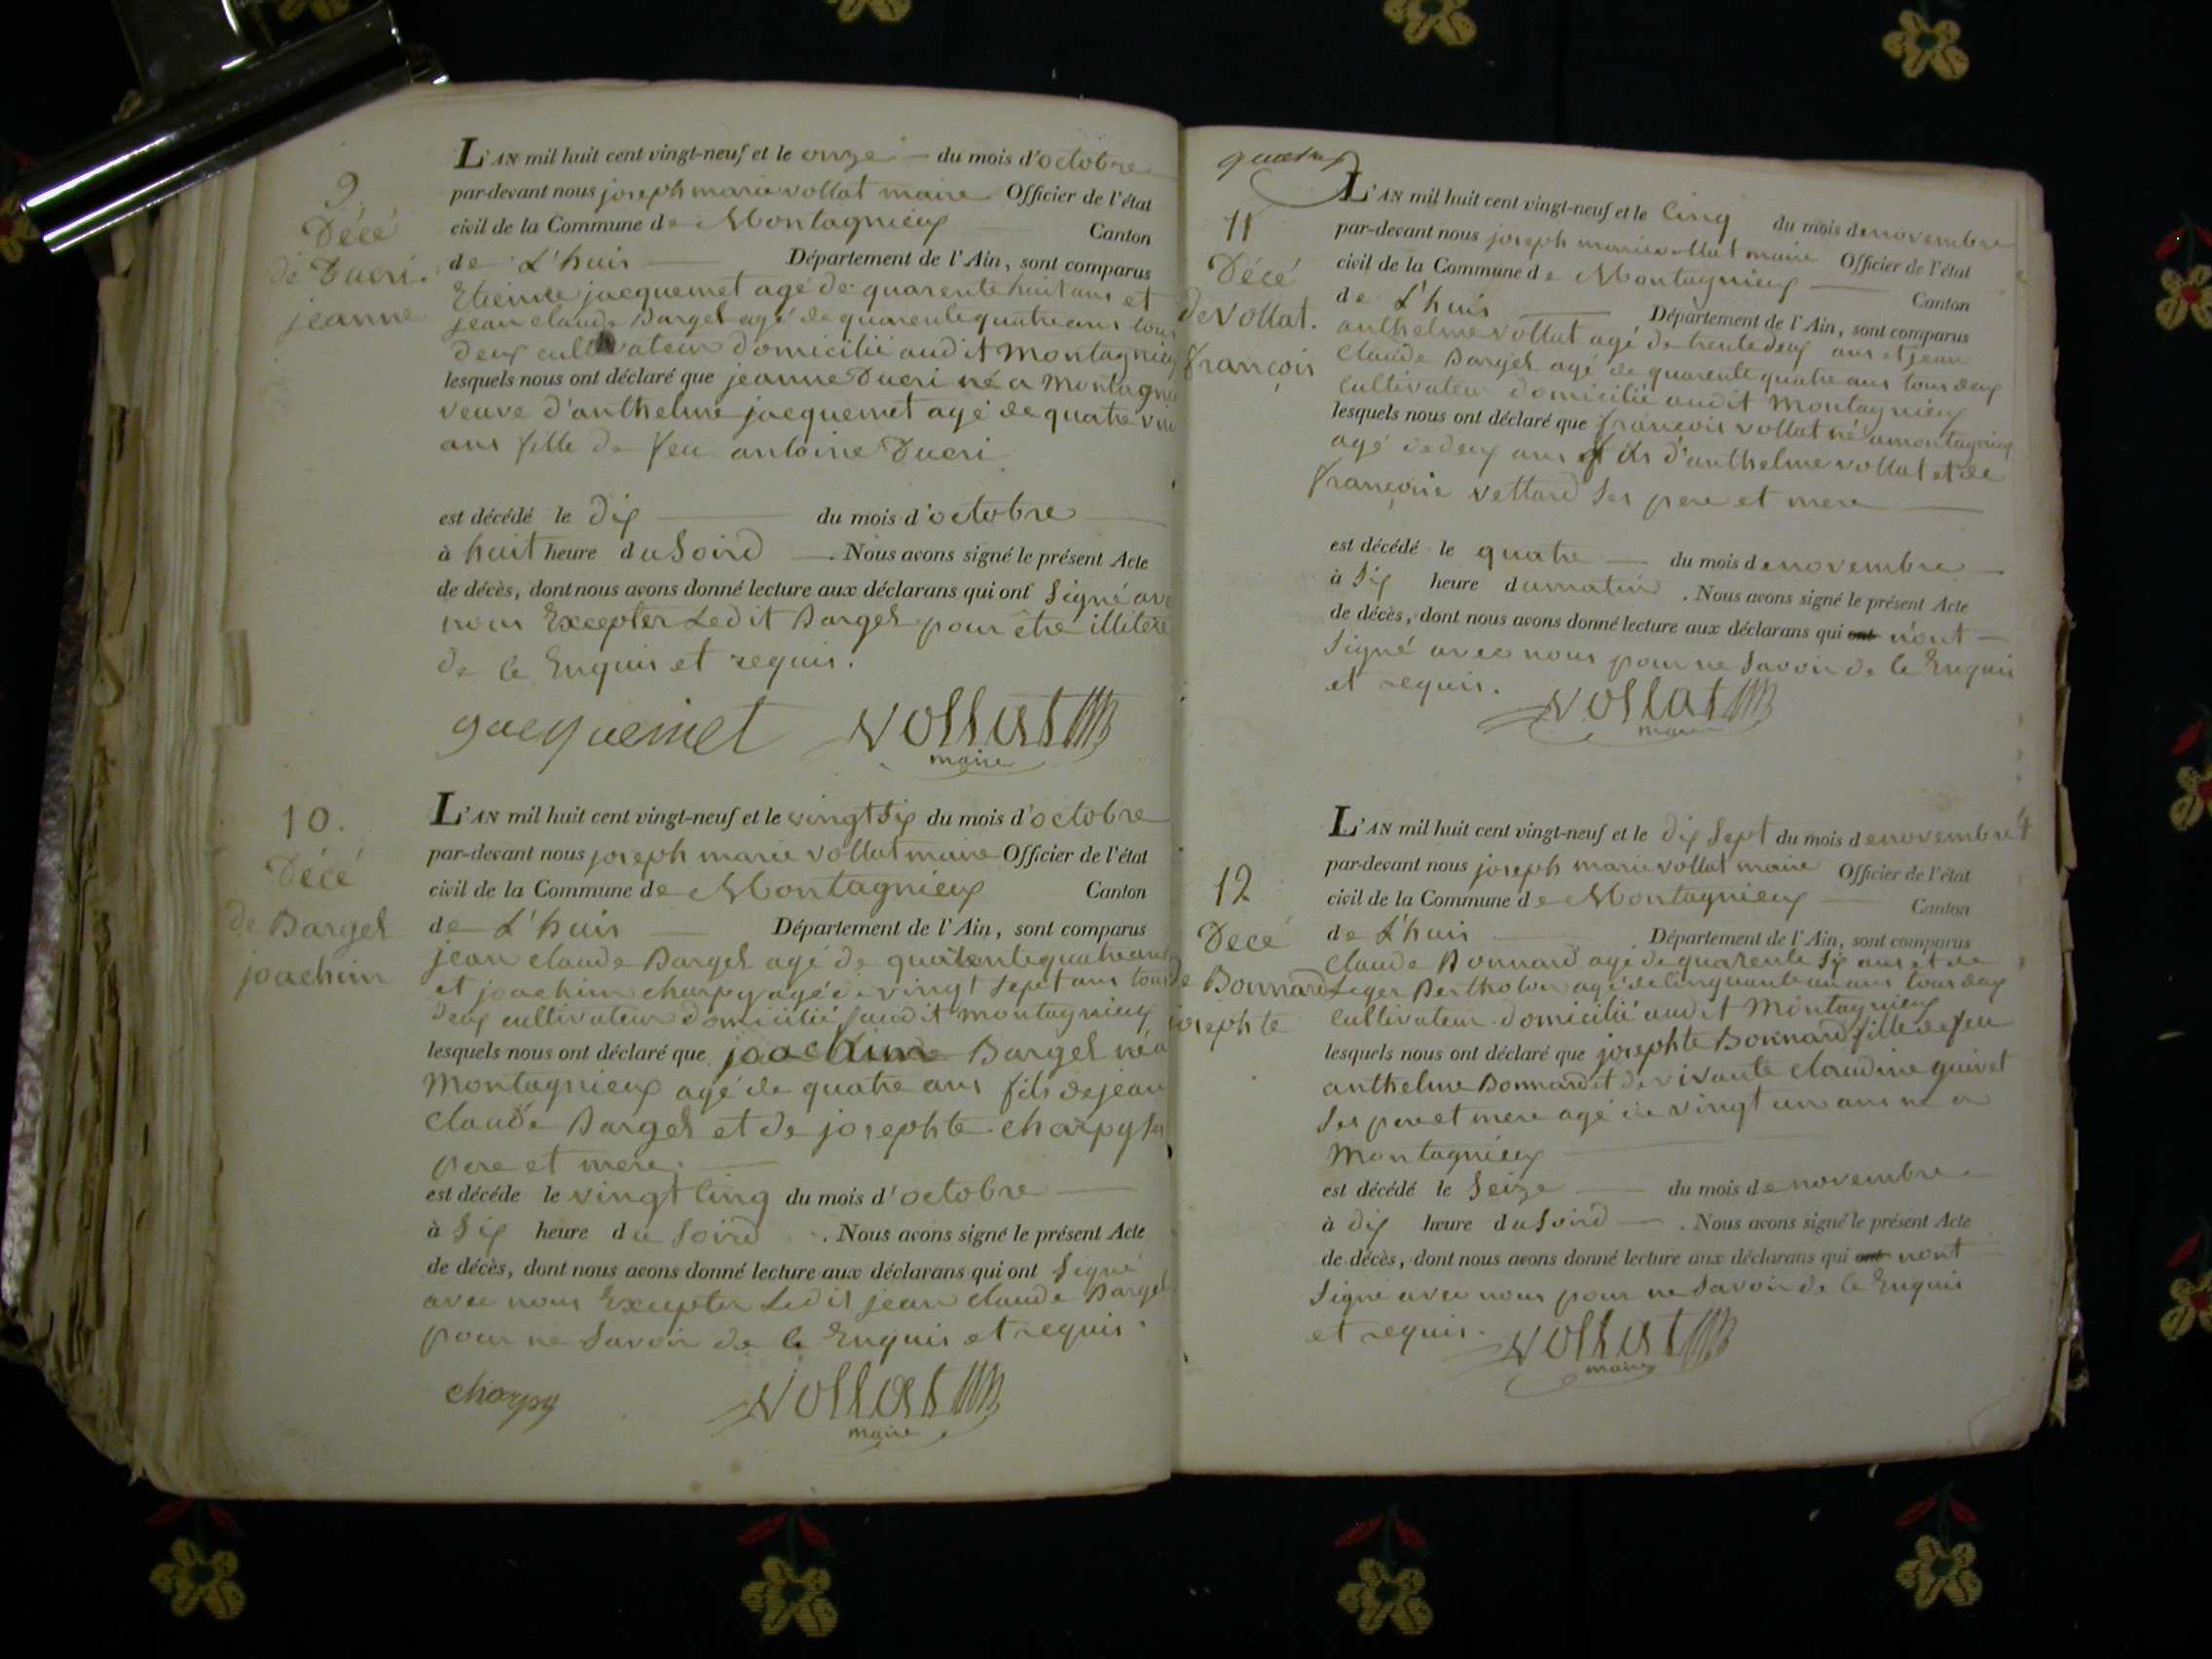 9.
Décé
de Ducri.
jeanne
L'AN mil huit cent vingt-neuf et le onze du mois d'octobre
par-devant nous joseph marie vollat maire Officier de l'état
civil de la Commune de Montagnieux Canton
de L'huis Département de l'Ain, sont comparus
Etienne jacquemet agé de quarente huit ans et
jean claude Bargel agé de quarente quatre ans tous
deux cultivateur domicilié audit Montagnieux
lesquels nous ont déclaré que jeanne Ducri né a Montagni
veuve d'anthelme jacquemet agé de quatre vin
ans fille de feu antoine Ducri
est décédé le dix du mois d'octobre
à huit heure du Soird . Nous avons signé le présent Acte
de décès, dont nous avons donné lecture aux déclarans qui ont Signé ave
nous Excepter Ledit Bargel pour être illitéré
de ce Enquis et requis.
jacquemet vollat
maire
10.
Décé
de Bargel
joachim
L'AN mil huit cent vingt-neuf et le vingt Six du mois d'octobre
par-devant nous joseph marie vollat maire Officier de l'état
civil de la Commune de Montagnieux Canton
de L'huis Département de l'Ain, sont comparus
jean claude Bargel agé de quarente quatre ans
et joachim charpy agé de vingt Sept ans tous
deux cultivateur domicilié audit Montagnieux
lesquels nous ont déclaré que joachim Bargel né a
Montagnieux agé de quatre ans fils de jean
claude Bargel et de josephte charpy Ses
pere et mere.
est décédé le vingt Cinq du mois d'octobre
à Six heure du Soird . Nous avons signé le présent Acte
de décès, dont nous avons donné lecture aux déclarans qui ont Signé
avec nous Excepter Ledit jean claude Bargel
pour ne Savoir de ce Enquis et requis.
charpy vollat
maire
11
Décé
de vollat.
françois
L'AN mil huit cent vingt-neuf et le Cinq du mois de novembre
par-devant nous joseph marie vollat maire Officier de l'état
civil de la Commune de Montagnieux Canton
de L'huis Département de l'Ain, sont comparus
anthelme vollat agé de trente deux ans et jean
Claude Bargel agé de quarente quatre ans tous deux
Cultivateur domicilié audit Montagnieux
lesquels nous ont déclaré que françois vollat né a montagnieux
agé de deux ans fils d'anthelme vollat et de
françoise vettard Ses pere et mere
est décédé le quatre du mois de novembre
à Six heure du matin . Nous avons signé le présent Acte
de décès, dont nous avons donné lecture aux déclarans qui ont n'ont
Signé avec nous pour ne Savoir de ce Enquis
et requis. vollat
maire
12
Décé
de Bonnard
josephte
L'AN mil huit cent vingt-neuf et le dix Sept du mois de novembre
par-devant nous joseph marie vollat maire Officier de l'état
civil de la Commune de Montagnieux Canton
de L'huis Département de l'Ain, sont comparus
Claude Bonnard agé de quarente Six ans et de
Leger Bertholon agé de Cinquante un ans tous deux
Cultivateur domicilié audit Montagnieux
lesquels nous ont déclaré que josephte Bonnard fille de feu
anthelme Bonnard et de vivante claudine
Ses pere et mere agé de vingt un ans né a
Montagnieux
est décédé le Seize du mois de novembre
à dix heure du Soird . Nous avons signé le présent Acte
de décès, dont nous avons donné lecture aux déclarans qui ont nont
Signé avec nous pour ne Savoir de ce Enquis
et requis. vollat
maire